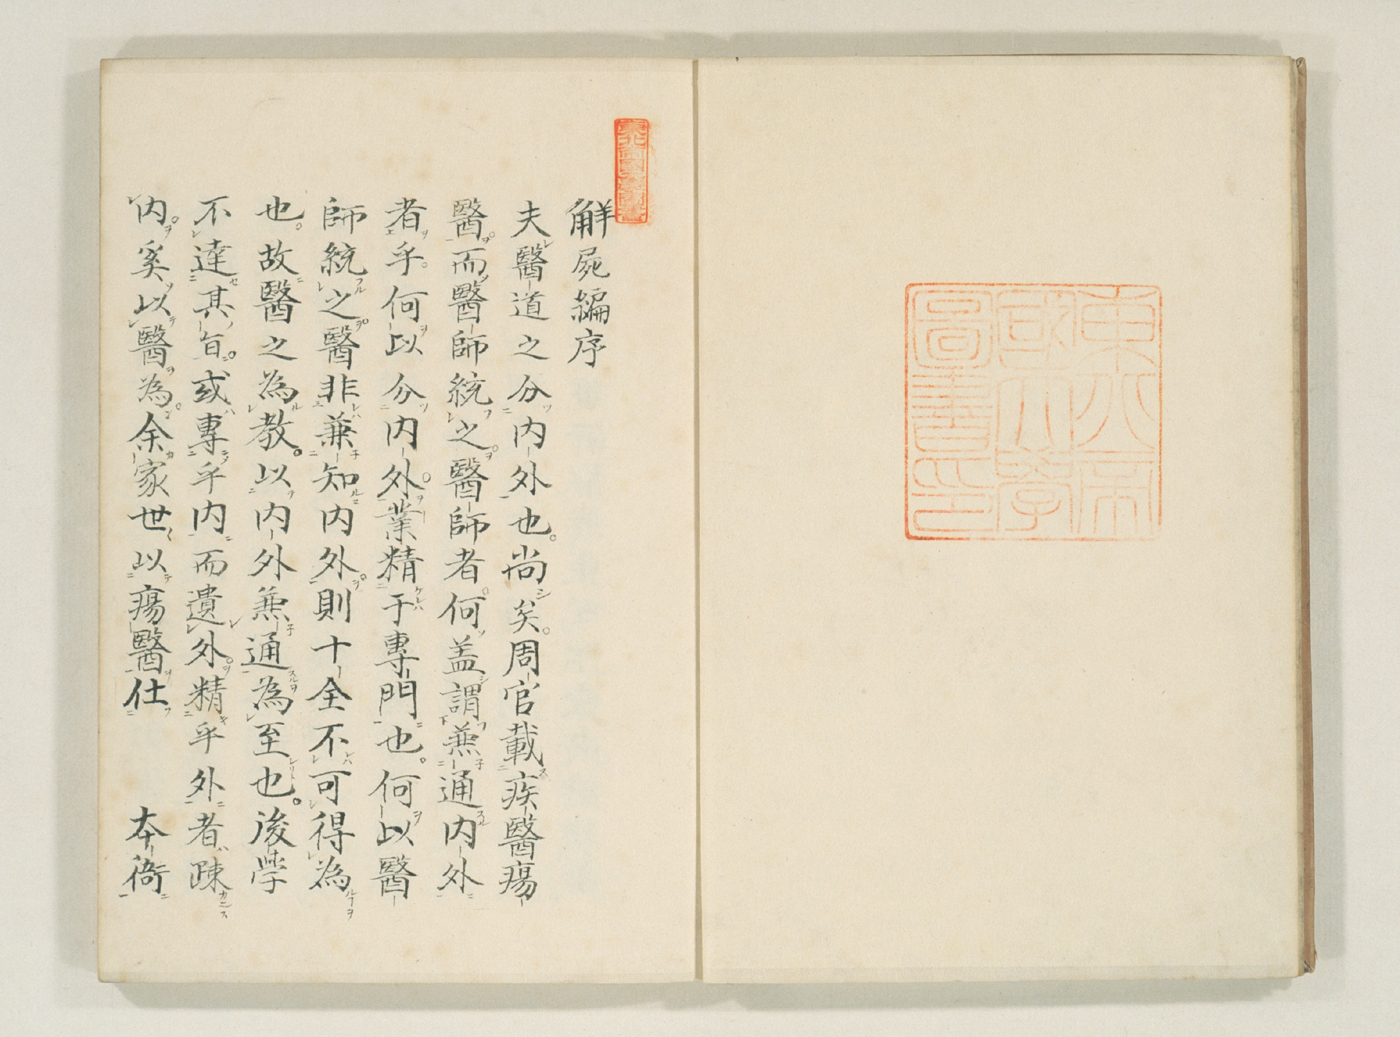 東北帝
國大學
圖書印
觧屍編序
夫醫道之分内外也。尚矣。周官載疾醫瘍
醫。而醫師統之。醫師者何。盖謂兼通内外
者乎。何以分内外。業精于專門也。何以醫
師統之。醫非兼知内外。則十全不可得為
也。故醫之為教。以内外兼通為至也。後學
不達其旨。或專乎内而遺外。精乎外者疎
内。奚以醫為。余家世以瘍醫仕　本衙